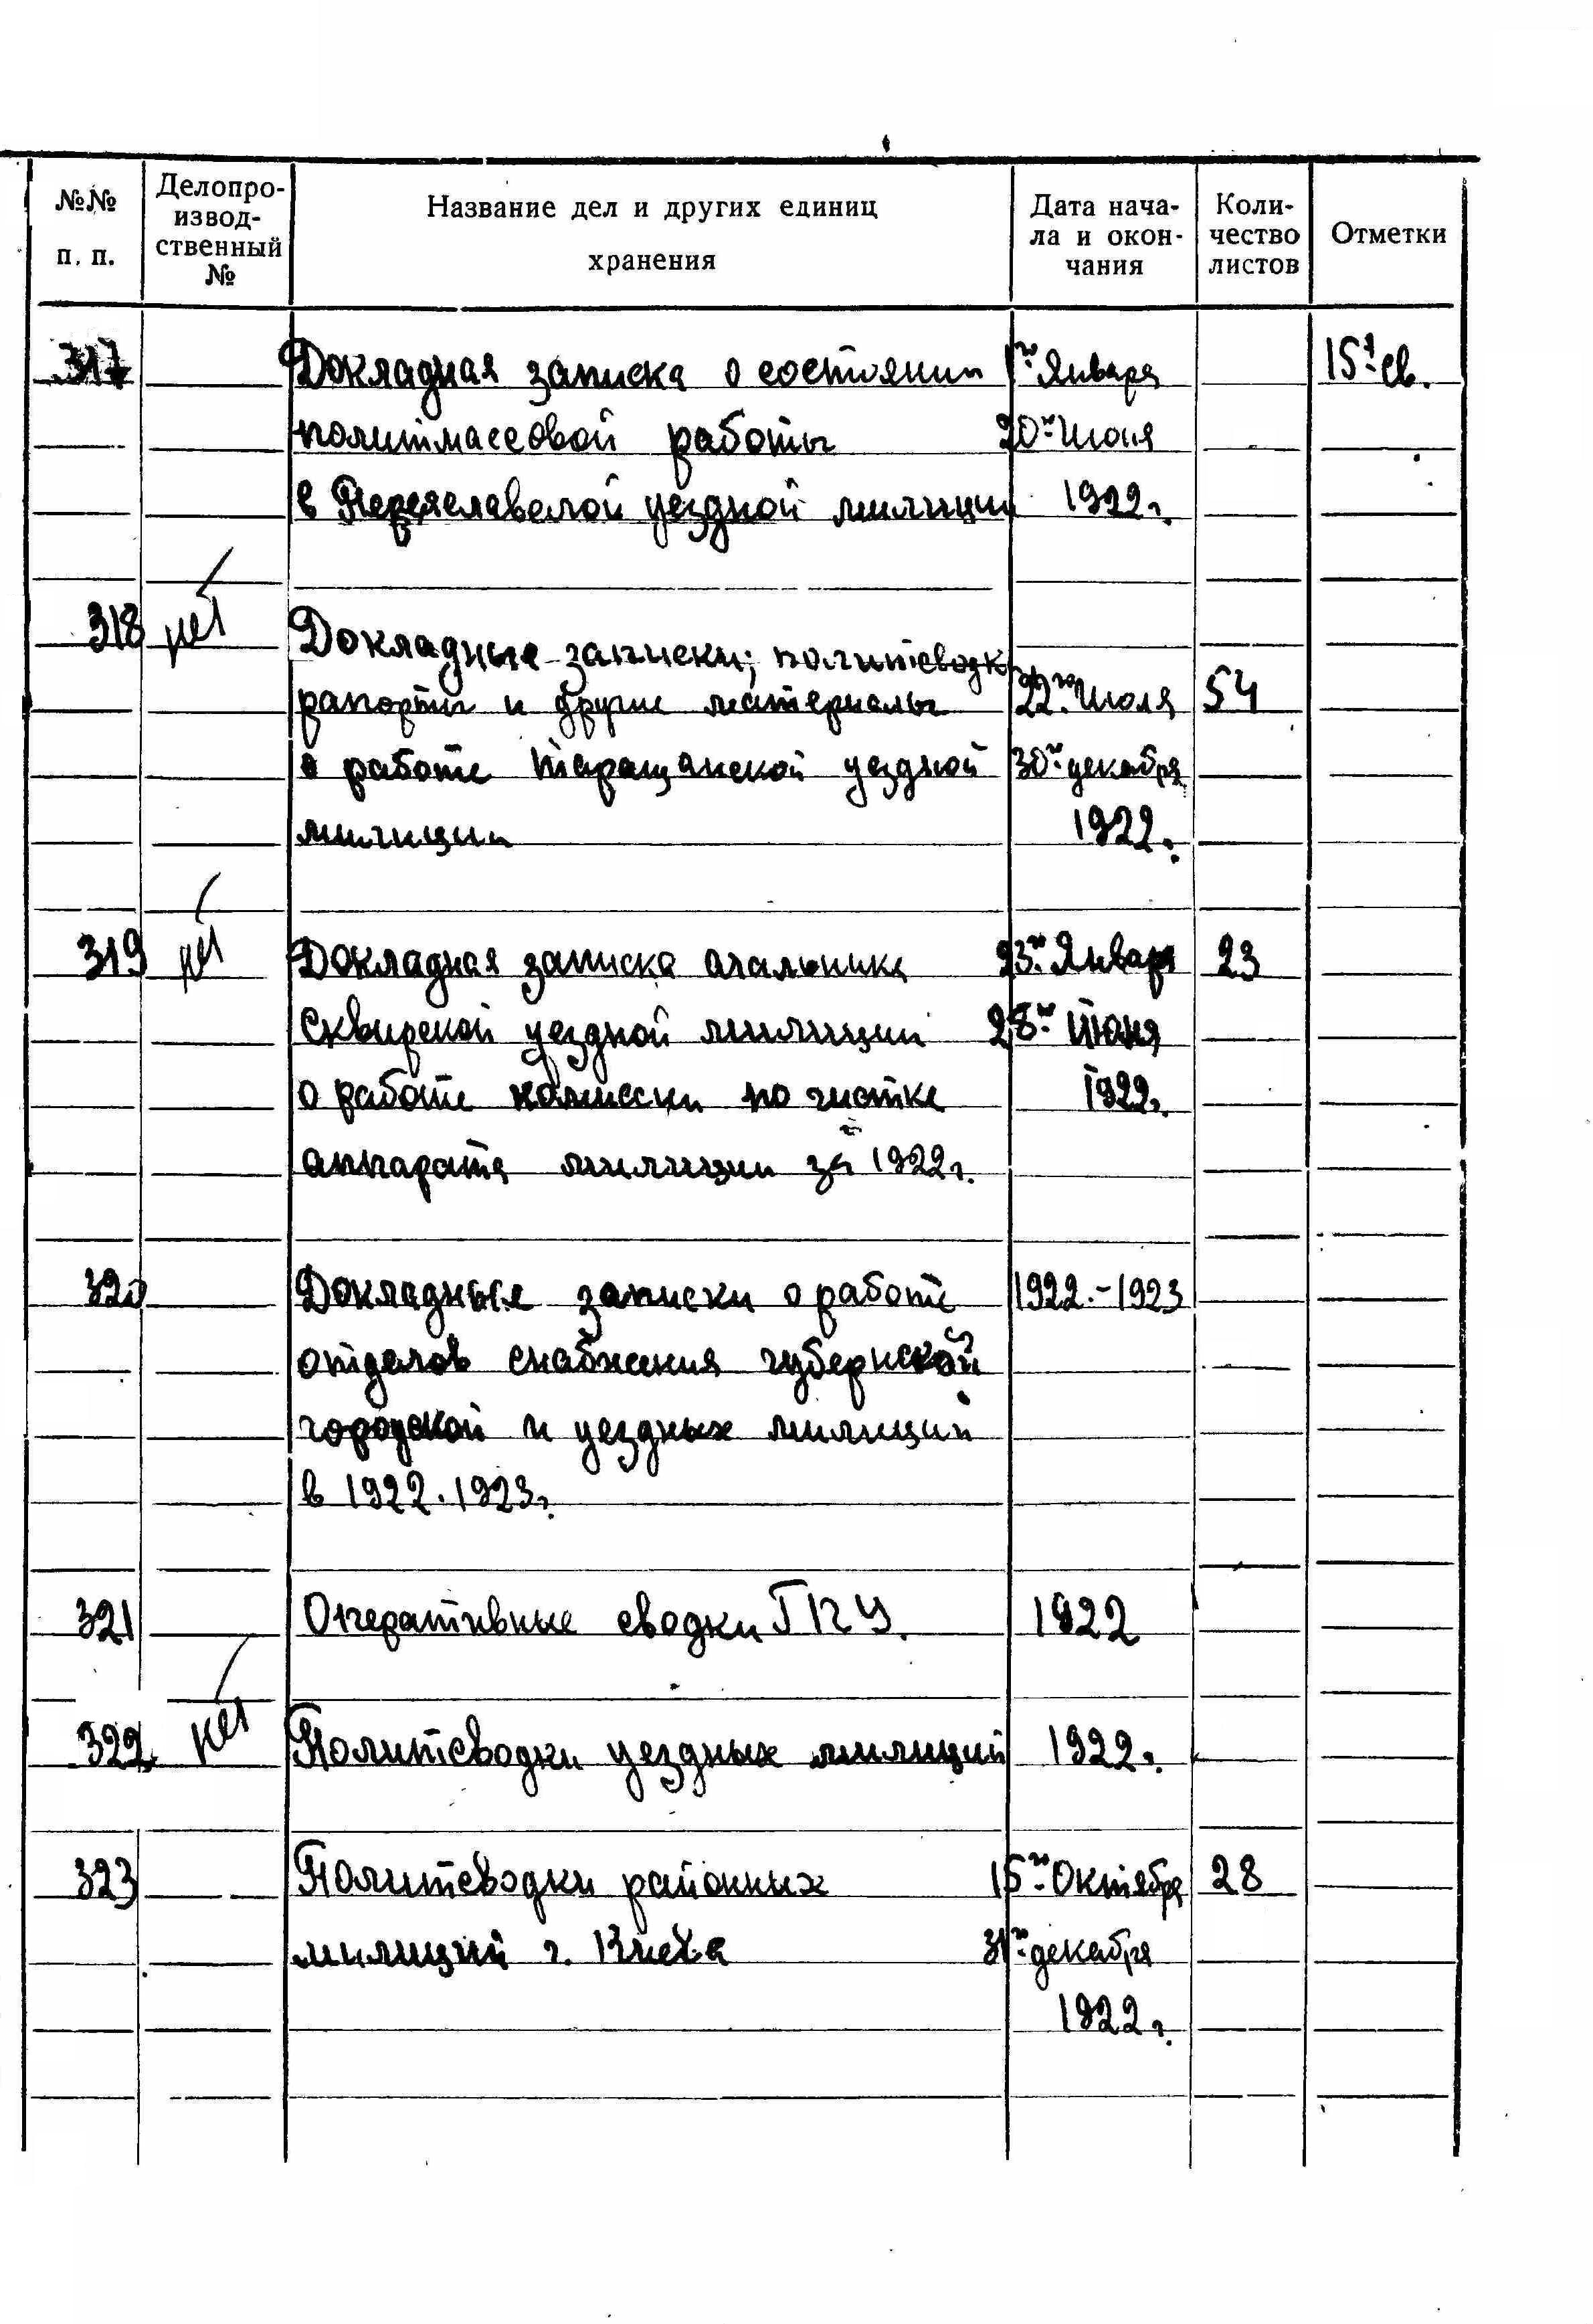 №№ п. п.
Делопро-
извод-
ственный
№
Название дел и других единиц
хранения
Дата нача-
ла и окон-
чания
Коли-
чество
листов
Отметки
317 Докладная записка о состоянии 1го Января 15-я св.
политмассовой работы 20го Июня
в Переяславской уездной милиции 1922 г.
318 нет Докладные записки, политсводки
рапорты и другие материалы 22го Июля 54
о работе Таращанской уездной 30го декабря
милиции 1922г.
319 нет Докладная записка ачальника 23го Января 23
Сквирской уездной милиции 28го Июня
о работе комиссии по чистке 1922г.
аппарата милиции за 1922г.
320 Докладные записки о работе 1922.-1923
отделов снабжения губернской
городской и уездных милиций
в 1922.1923г.
321 Оперативные сводки ГПУ. 1922
322 нет Политсводки уездных милиций 1922г.
323 Политсводки районных 15го Октября 28
милиций г. Киева 31го декабря
1922г.